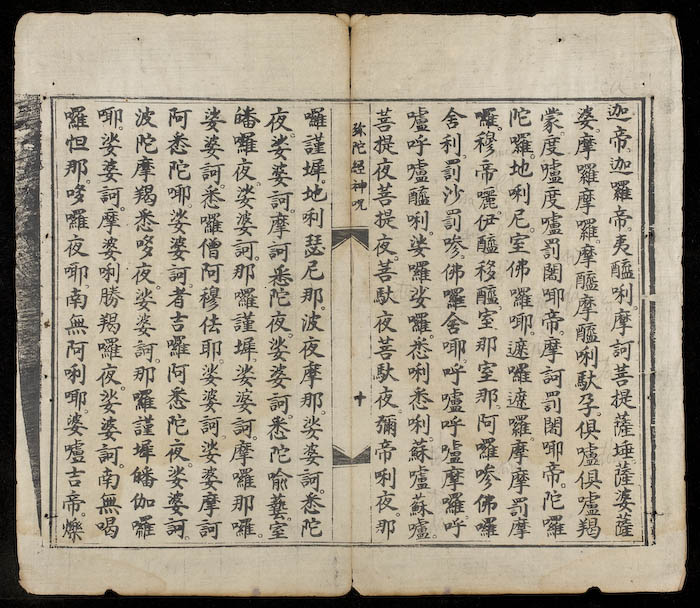 迦帝。迦羅帝。夷醯唎。摩訶菩提薩埵。薩婆薩
婆。摩囉摩囉。摩醯摩醯唎馱孕。俱嚧俱嚧羯
蒙。度嚧度嚧罰闍耶帝。摩訶罰闍耶帝。陀囉
陀囉。地唎尼。室佛囉耶。遮囉遮囉。摩摩罰摩
囉。穆帝囇。伊醯移醯。室那室那。阿囉嘇佛囉
舍利。罰沙罰嘇。佛囉舍耶。呼嚧呼嚧摩囉。呼
嚧呼嚧醯唎。娑囉娑囉。悉唎悉唎。蘇嚧蘇嚧。
菩提夜菩提夜。菩馱夜菩馱夜。彌帝唎夜。那
弥陀經神咒
十
囉謹墀。地唎瑟尼那。波夜摩那。娑婆訶。悉陀
夜。娑婆訶。摩訶悉陀夜。娑婆訶。悉陀喻藝。室
皤囉夜。娑婆訶。那囉謹墀。娑婆訶。摩囉那囉。
娑婆訶。悉囉僧阿穆佉耶。娑婆訶。娑婆摩訶
阿悉陀耶。娑婆訶。者吉囉阿悉陀夜。娑婆訶。
波陀摩羯悉哆夜。娑婆訶。那囉謹墀皤伽囉
耶。娑婆訶。摩婆唎勝羯囉夜。娑婆訶。南無喝
囉怛那。哆囉夜耶。南無阿唎耶。婆嚧吉帝。爍